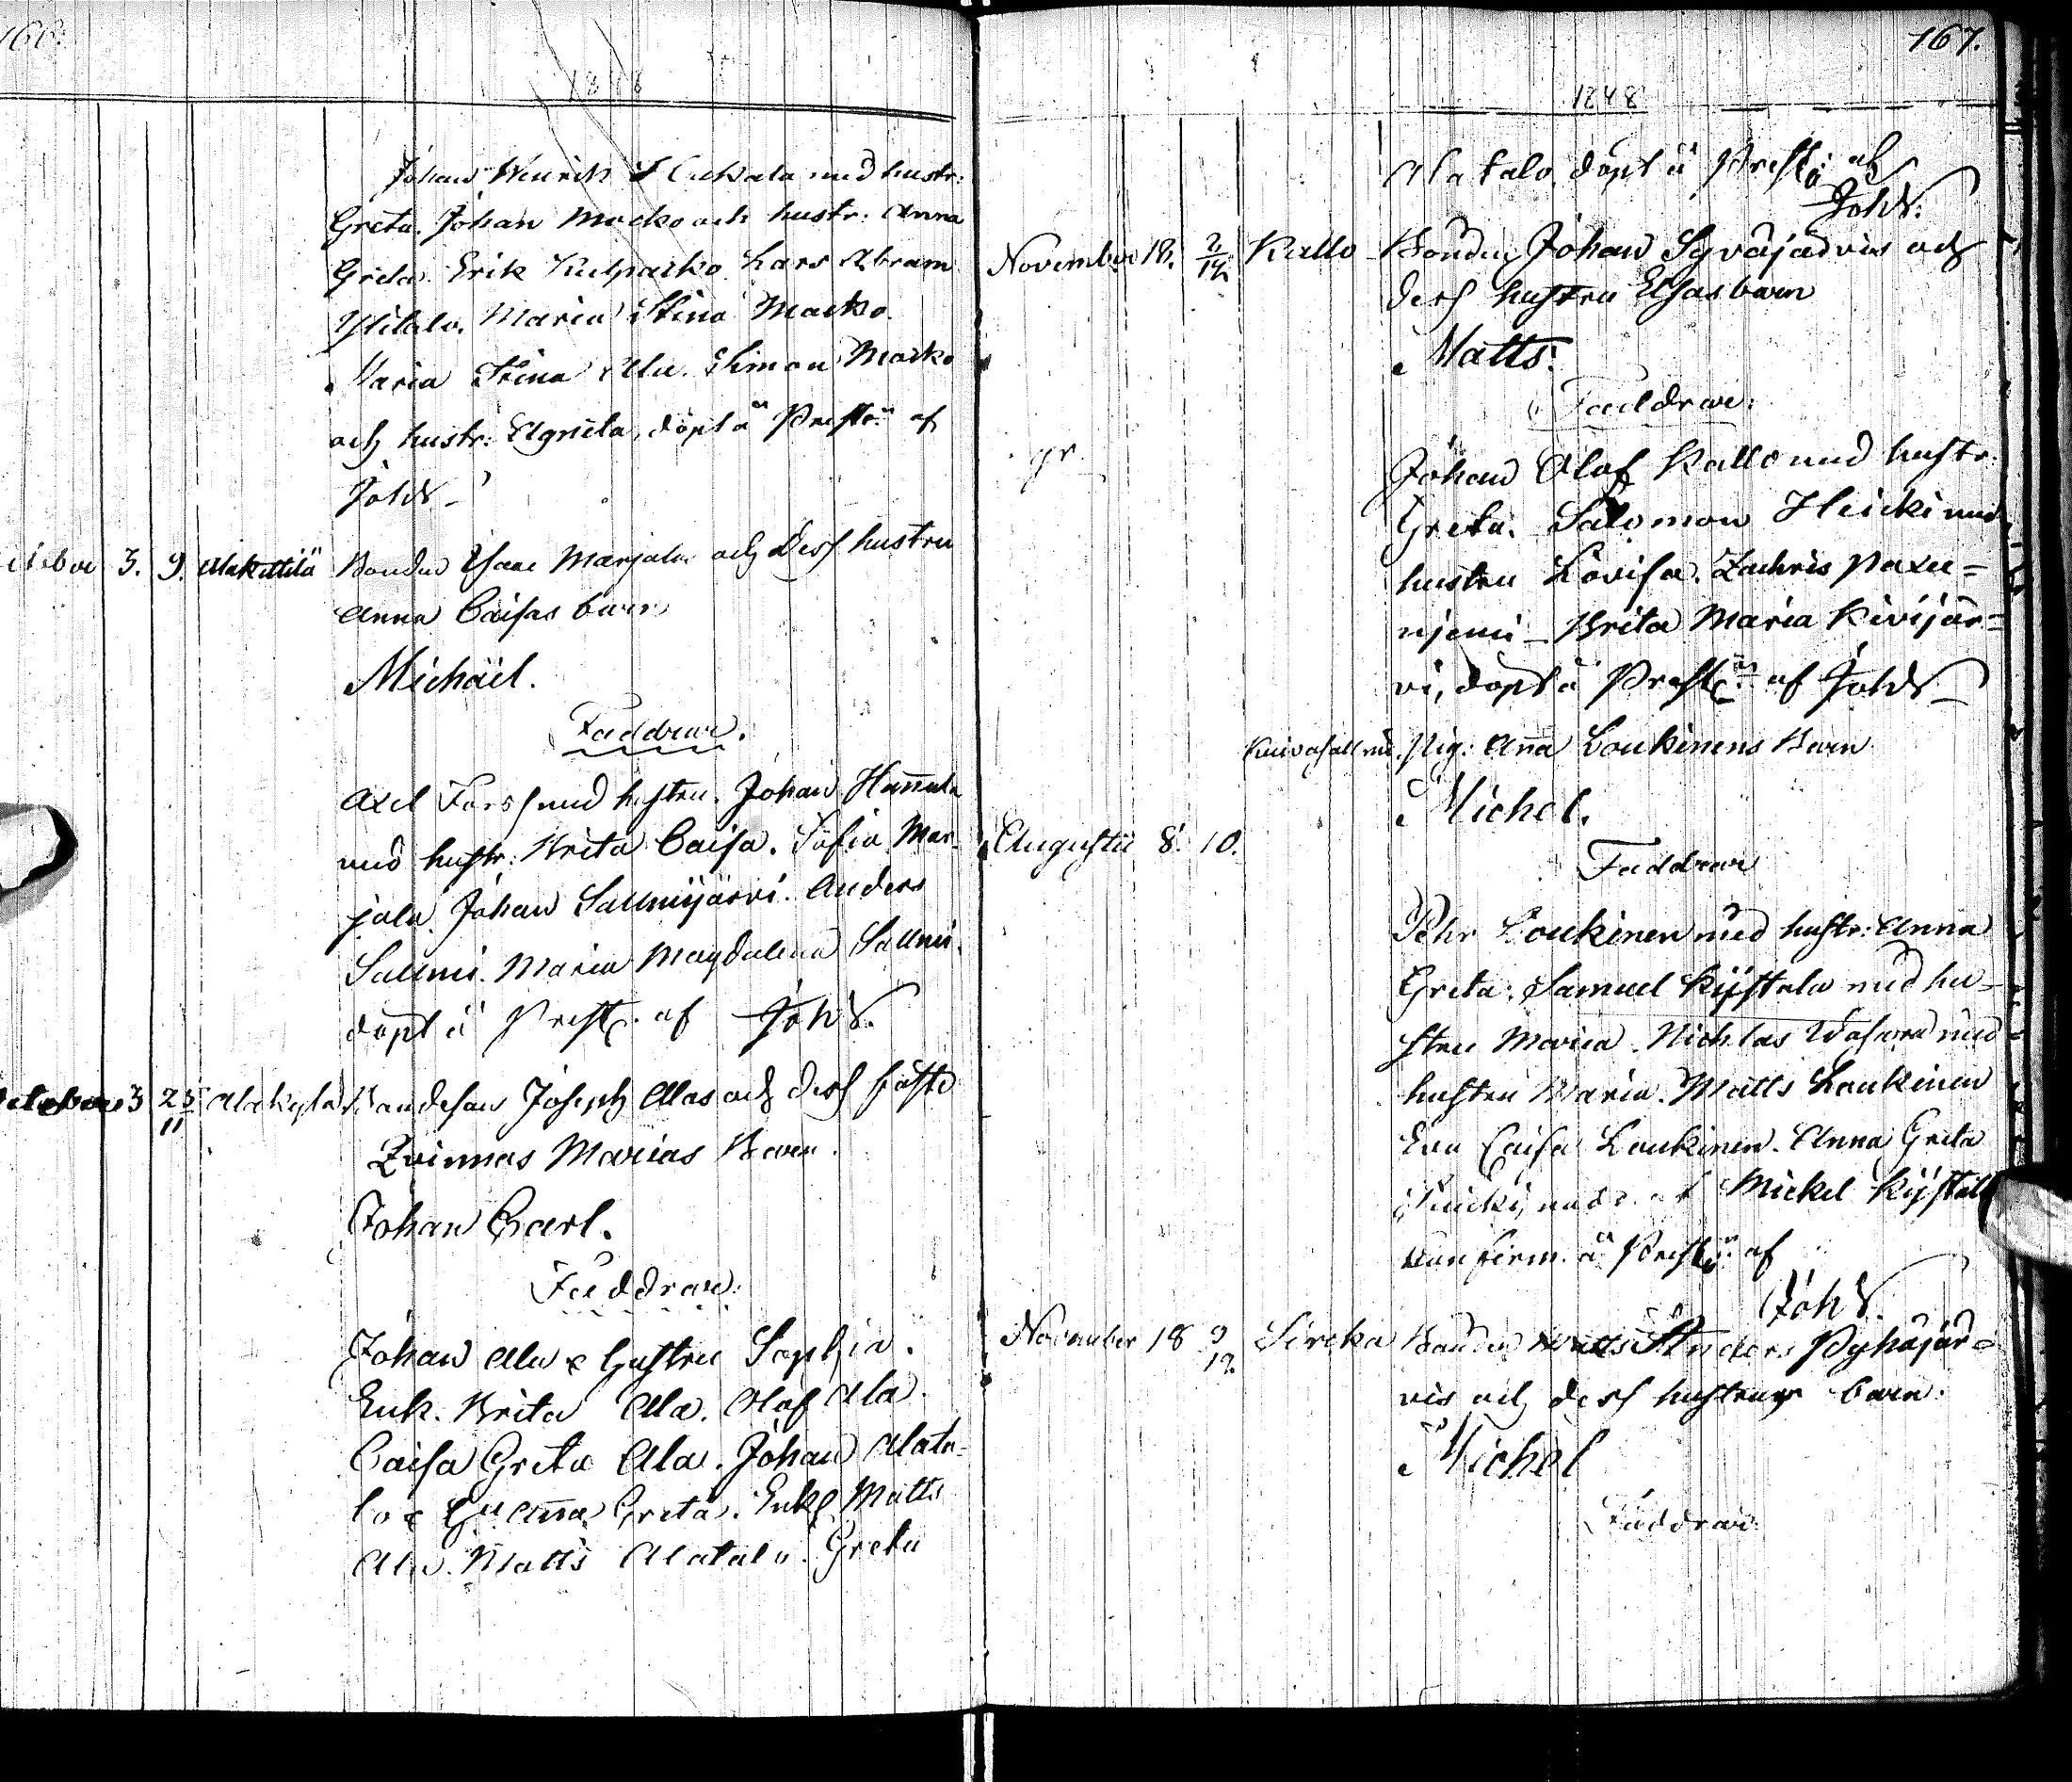 166.
1848
Johan Henrik med hustr:
Greta. Johan Mocko och hustr: Anna
Greta. Erik Lars Abram
Ylitalo. Maria Stina Macko.
Maria Stina Ala. Simon Macko
och hustr: Agneta, döpt å Prestg. af
Johds
October 3. 9. Alakittilä Bonden Isaac Marjala och dess hustru
Anna Caisas barn
Michäel.
Faddrar.
Axel Forss med hustru. Johan Hannula
med hustr: Brita Caisa. Sofia Mar-
jala. Johan Salmijärvi. Anders
Salmi. Maria Magdalena Salmi.
döpt å Prestg. af Johds.
October 3 25/11 Alakylä Bondeson Joseph Alas och dess fäste
Qvinnas Marias Barn.
Johan Carl.
Faddrar.
Johan Ala & hustru Sophia.
Enk. Brita Ala. Olof Ala.
Caisa Greta Ala. Johan Alata-
lo & Hu Anna Greta. Matts
Ala. Matts Alatalo. Greta
167.
1848
Alatalo döpt å Prestg. af
Johds.
November 18. 2/12 Kallo Bonden Johan Syväjärvis och
dess hustru Elsas barn
Matts.
Faddrar.
gr. Johan Olof Kallo med hustr.
Greta. Salomon Heicki med
hustru Lovisa. Zachris Paxu=
njemi - Brita Maria Kivijär=
vi, döpt å Prestg. af Johds
Pig: Anna Loukinens Barn
Michel.
Augusti 8. 10.
Faddrar
Pehr Loukinen med hustr: Anna
Greta. Samuel Kyställä med hu-
stru Maria. Nichlas med
hustru Maria. Matts Loukinen
Eva Caisa Loukinen. Anna Greta
Mickel Kyställä
konfirm. å Prestg. af
Johds.
November 18 9/12 Sircka Bonden Matts Anders Pyhäjär=
vis och dess hustrus barn.
Michel
Faddrar.